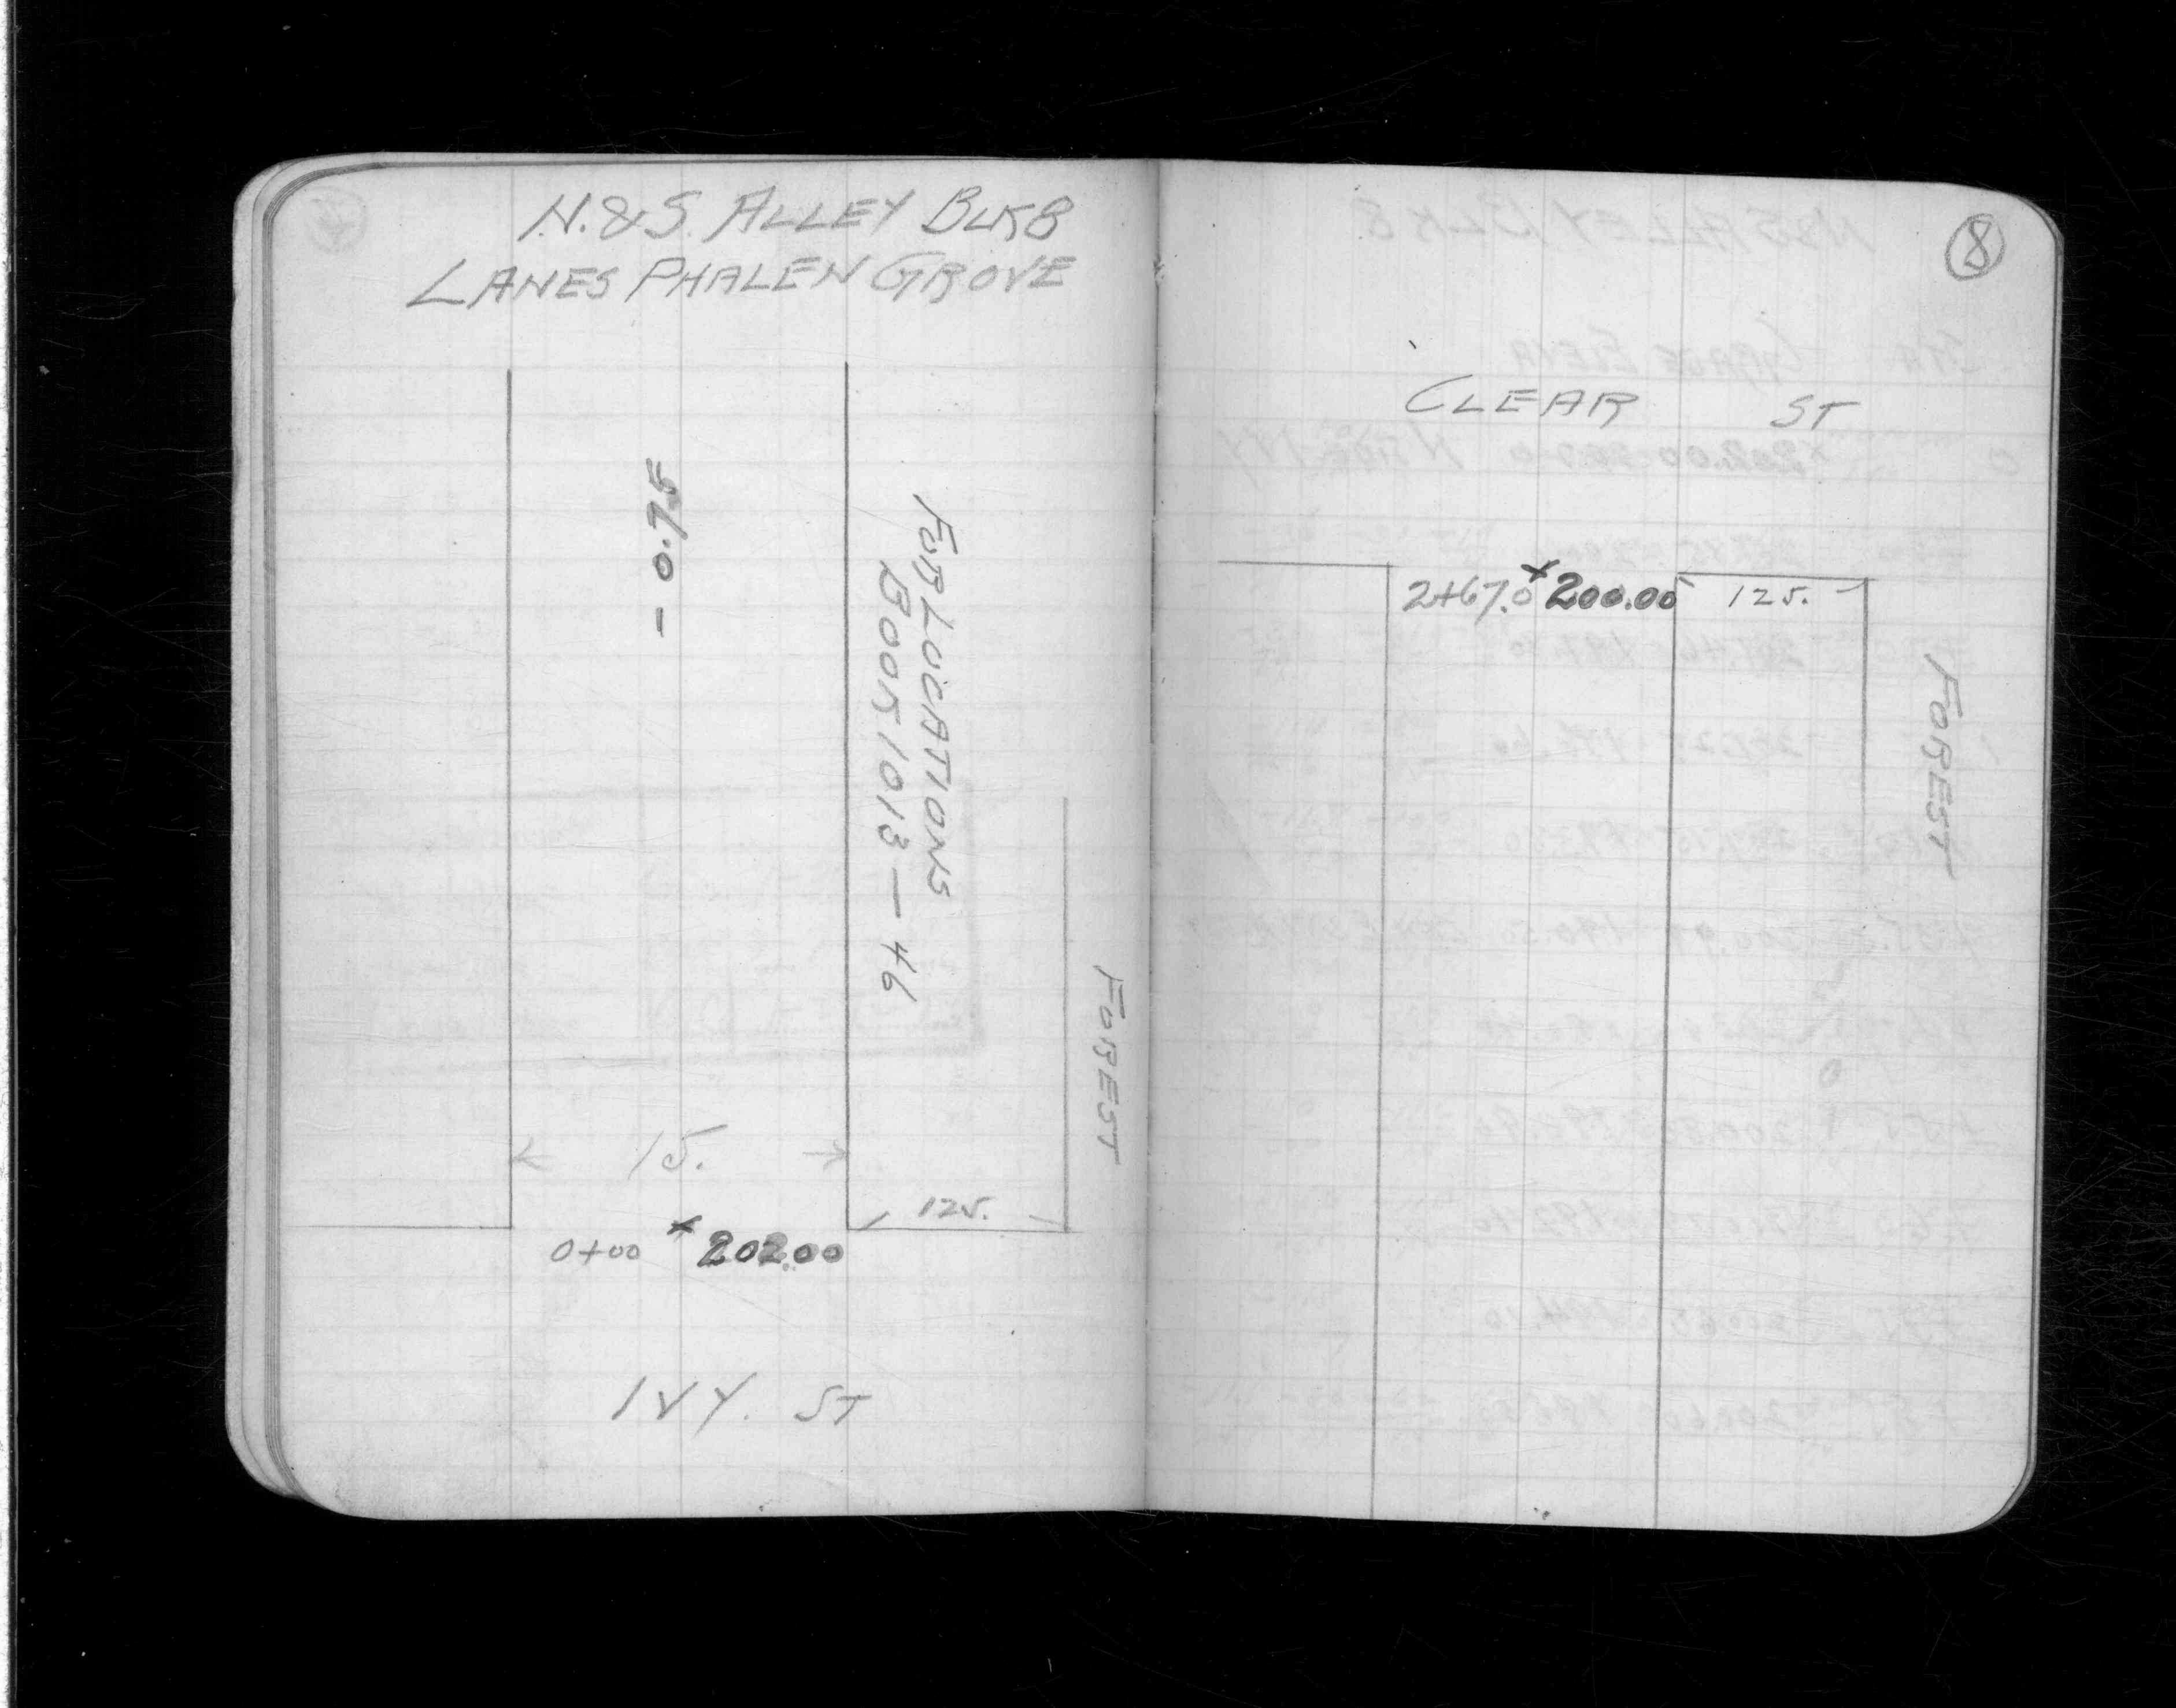 N. & S. ALLEY BLK 8
LANES PHALEN GROVE
- 0.75
FOR LOCATIONS
BOOK 1013 — 46
FOREST
15.
125.
0+00 * 202.00
IVY. ST
8
CLEAR ST
2+67.0 * 200.00 125.
FOREST